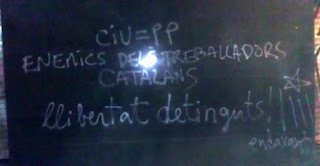 CiU=PP
ENEMICS DELS TREBALLADORS
CATALANS
llibertat detinguts!!!!!
endavant